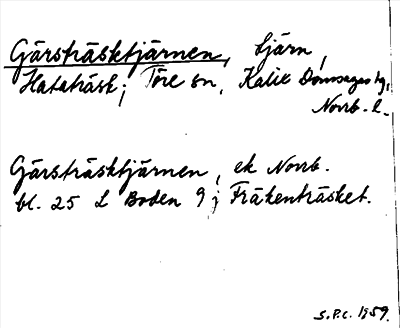 Gärsträsktjärnen, tjärn,
Hataträsk; Töre sn, Kalix Domsagas tg,
Norrb. l.
Gärsträsktjärnen, ek Norrb.
bl. 25 L Boden 9 j Fräkenträsket.
S.P.C. 1959.